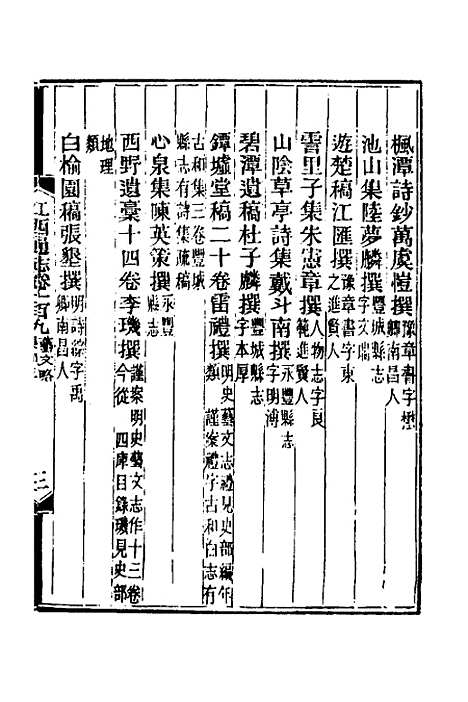 楓潭詩鈔萬虞愷撰豫章書字懋卿南昌人
池山集陸夢麟撰豐城縣志字文瑞
遊楚稿江匯撰豫章書字東之進賢人
雲里子集朱憲章撰人物志字良範進賢人
山陰草亭詩集戴斗南撰永豐縣志字明溥
碧潭遺稿杜子麟撰豐城縣志字本厚
鐔墟堂稿二十卷雷禮撰明史藝文志禮見史部編年類謹案禮字古和白志有
古和集三卷豐城縣志有詩集疏稿
心泉集陳英策撰永豐縣志
西野遺稾十四卷李璣撰謹案明史藝文志作十三卷今從四庫目錄璣見史部
地理類
白榆園稿張墾撰明詩綜字禹卿南昌人
江西通志卷一百九藝文略
三